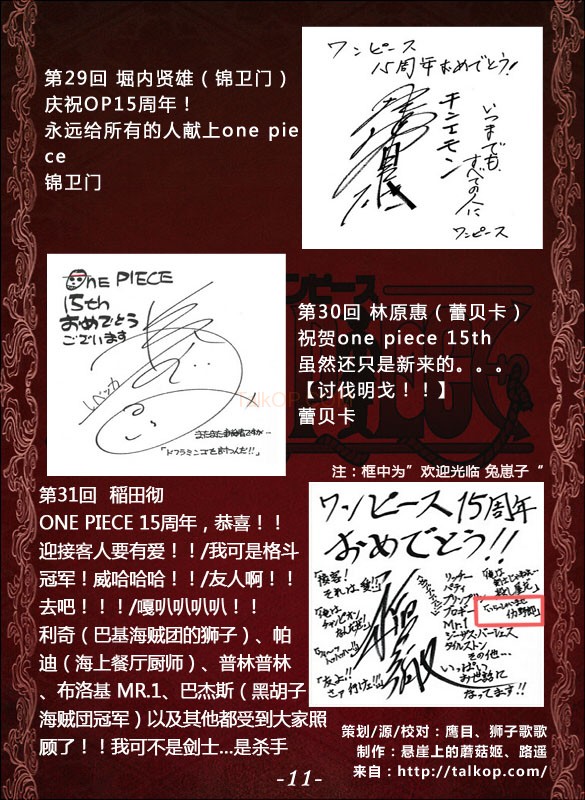 第29回 堀内贤雄（锦卫门）
庆祝OP15周年！
永远给所有的人献上one pie
ce
锦卫门
ワンピース
15周年おめでとう!
キンエモン
いつまでも
すべての人に
ワンピース
ONE PIECE
15th
おめでとう
ございます
レベッカ
まだまだ新参者ですが…
「ドフラミンゴを討つんだ!!」
第30回 林原惠（蕾贝卡）
祝贺one piece 15th
虽然还只是新来的。。。
【讨伐明戈！！】
蕾贝卡
注：框中为”欢迎光临 兔崽子“
第31回 稲田彻
ONE PIECE 15周年，恭喜！！
迎接客人要有爱！！/我可是格斗
冠军！威哈哈哈！！/友人啊！！
去吧！！！/嘎叭叭叭叭！！
利奇（巴基海贼团的狮子）、帕
迪（海上餐厅厨师）、普林普林
、布洛基 MR.1、巴杰斯（黑胡子
海贼团冠军）以及其他都受到大家照
顾了！！我可不是剑士...是杀手
ワンピース 15周年
おめでとう!!
「接客!
それは、愛!!」
「俺は
チャンピオン
「友よ!!
さァ行け!!」
リッチー
パティ
プリンプリン
ブロギー
Mr.1
ジーザス・バージェス
その他…
いっぱい
お世話に
なってます!!
「いらっしゃいませ
策划/源/校对：鹰目、狮子歌歌
制作：悬崖上的蘑菇姬、路遥
来自：http://talkop.com/
-11-